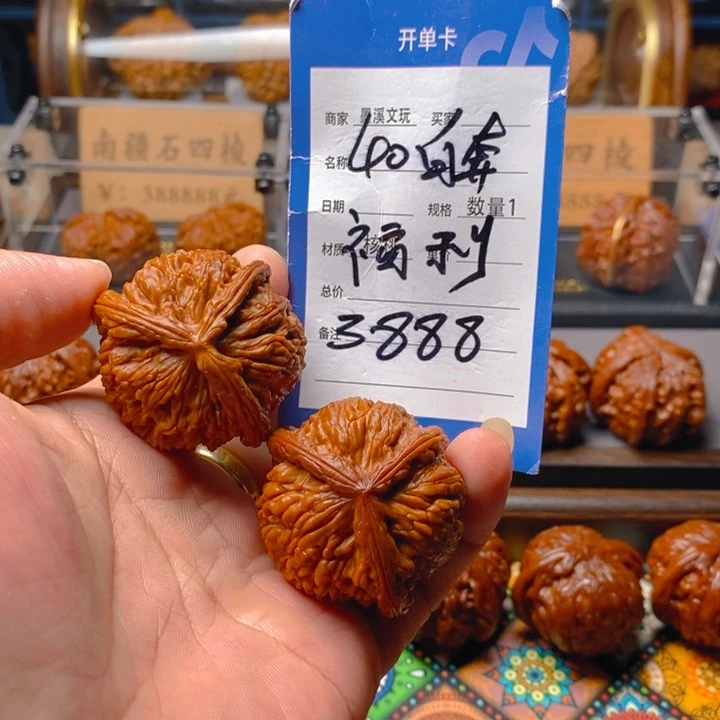 开单卡
商家 墨溪文玩 买家
名称 40白奔
日期 规格 数量1
材质 核桃
福利
总价
备注 3888
南疆石四棱
¥：388888元
四棱